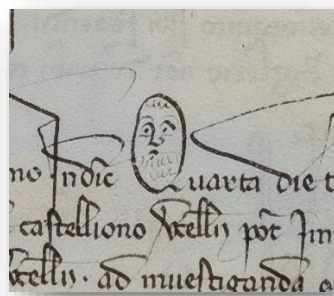 no Indic Quarta die t
castelliono Vcellij pōt Im
Vcellij · ad inuestigandā e